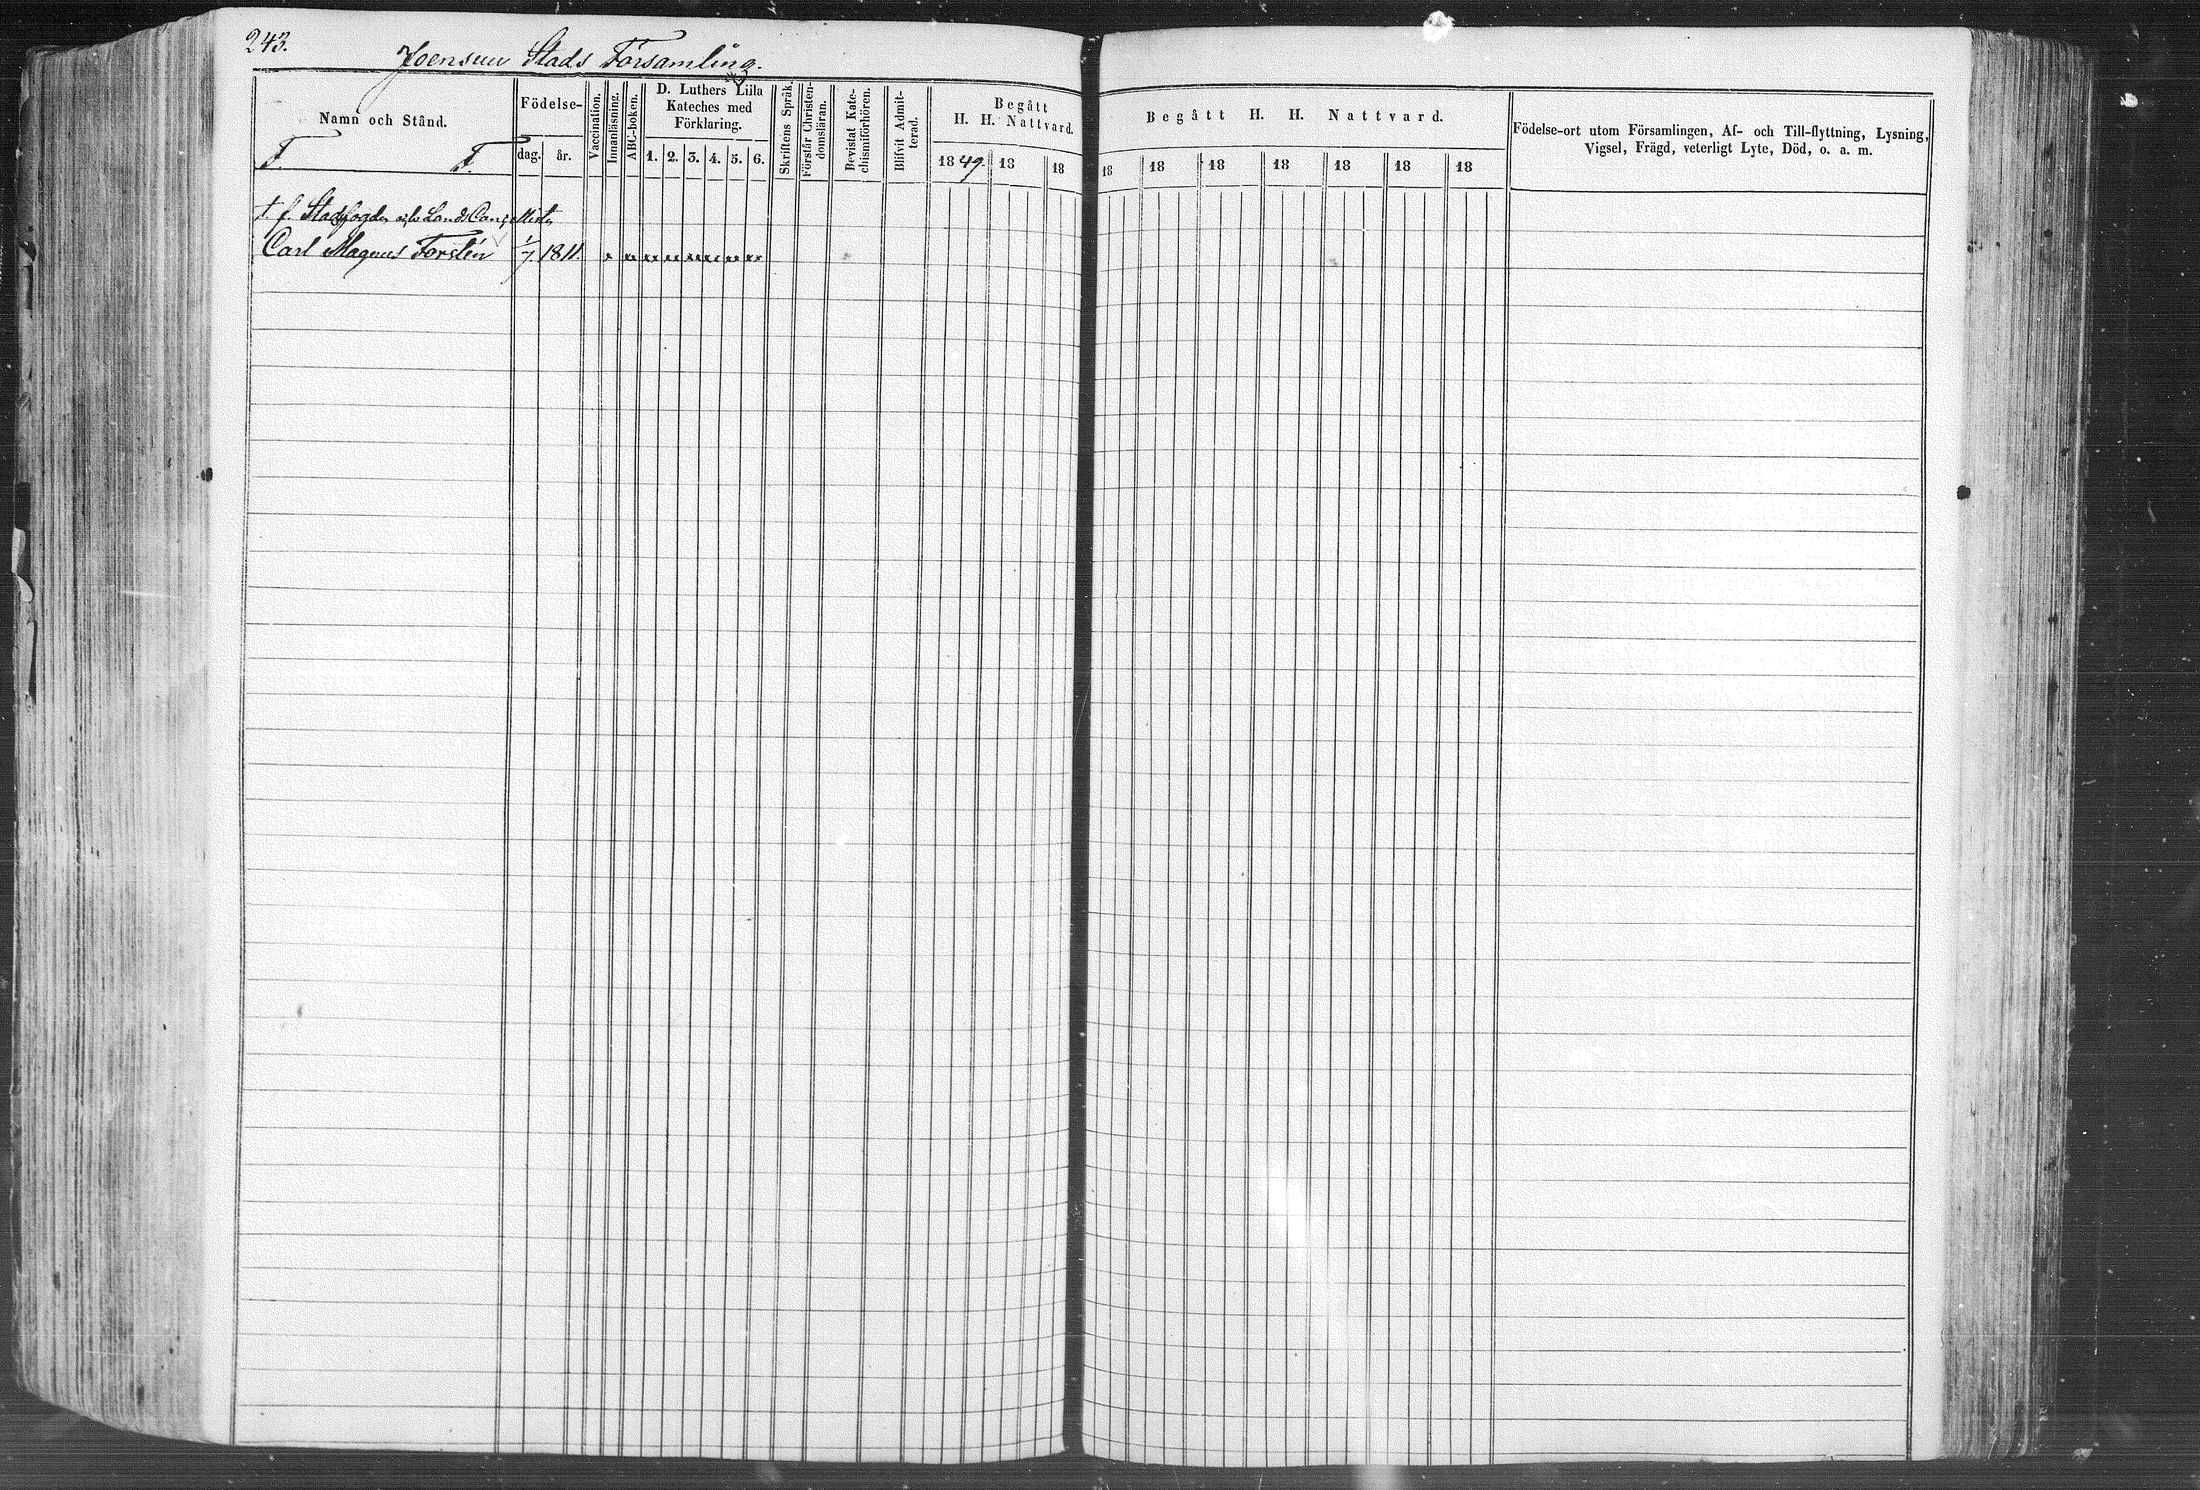 243.
Joensuu Stads Församling.
Namn och Stånd.
F. F.
Födelse-
dag. år.
Vaccination.
Innanläsning.
ABC-boken.
D. Luthers Lilla
Kateches med
Förklaring.
1. 2. 3. 4. 5. 6.
Skriftens Språk.
Förstår Christen-
domsläran.
Bevistat Kate-
chismiförhören.
Blifvit Admit-
terad.
Begått
H. H. Nattvard.
1849. 18 18
Begått H. H. Nattvard.
18 18 18 18 18 18 18
Födelse-ort utom Församlingen, Af- och Till-flyttning, Lysning,
Vigsel, Frägd, veterligt Lyte, Död, o. a. m.
t. f. Stadsfogden Lands Canzellisten
Carl Magnus Forstén 1/7 1811.